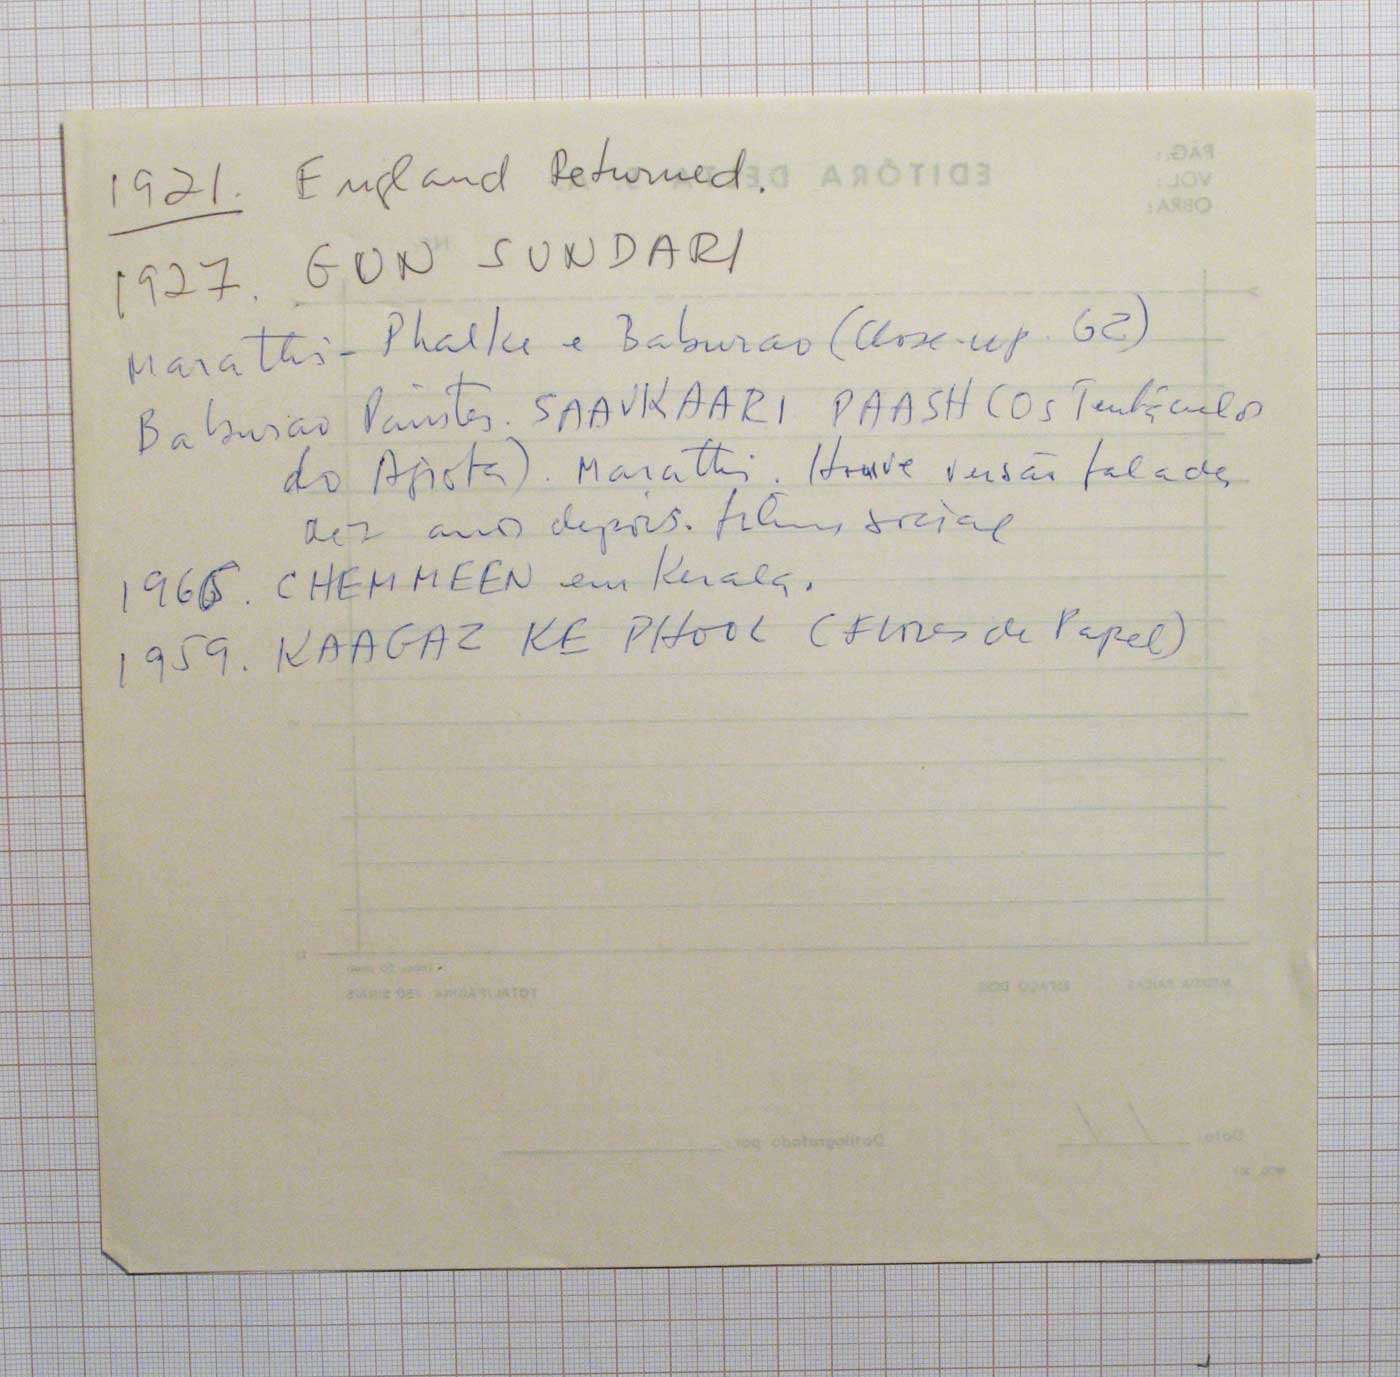 1921. England Returned.
1927. GUN SUNDARI
Marathi - Phalke e Baburao (Close-up. 62)
Baburao Painter. SAAVKAARI PAASH (Os Tentáculos
do Agiota). Marathi. Houve versão falada
dez anos depois. filme social
1965. CHEMMEEN em Kerala.
1959. KAAGAZ KE PHOOL (Flores de Papel)
PÁG.:
VOL.:
OBRA:
EDITÔRA DELTA
ESPAÇO DOIS
Data:
Datilografado por: